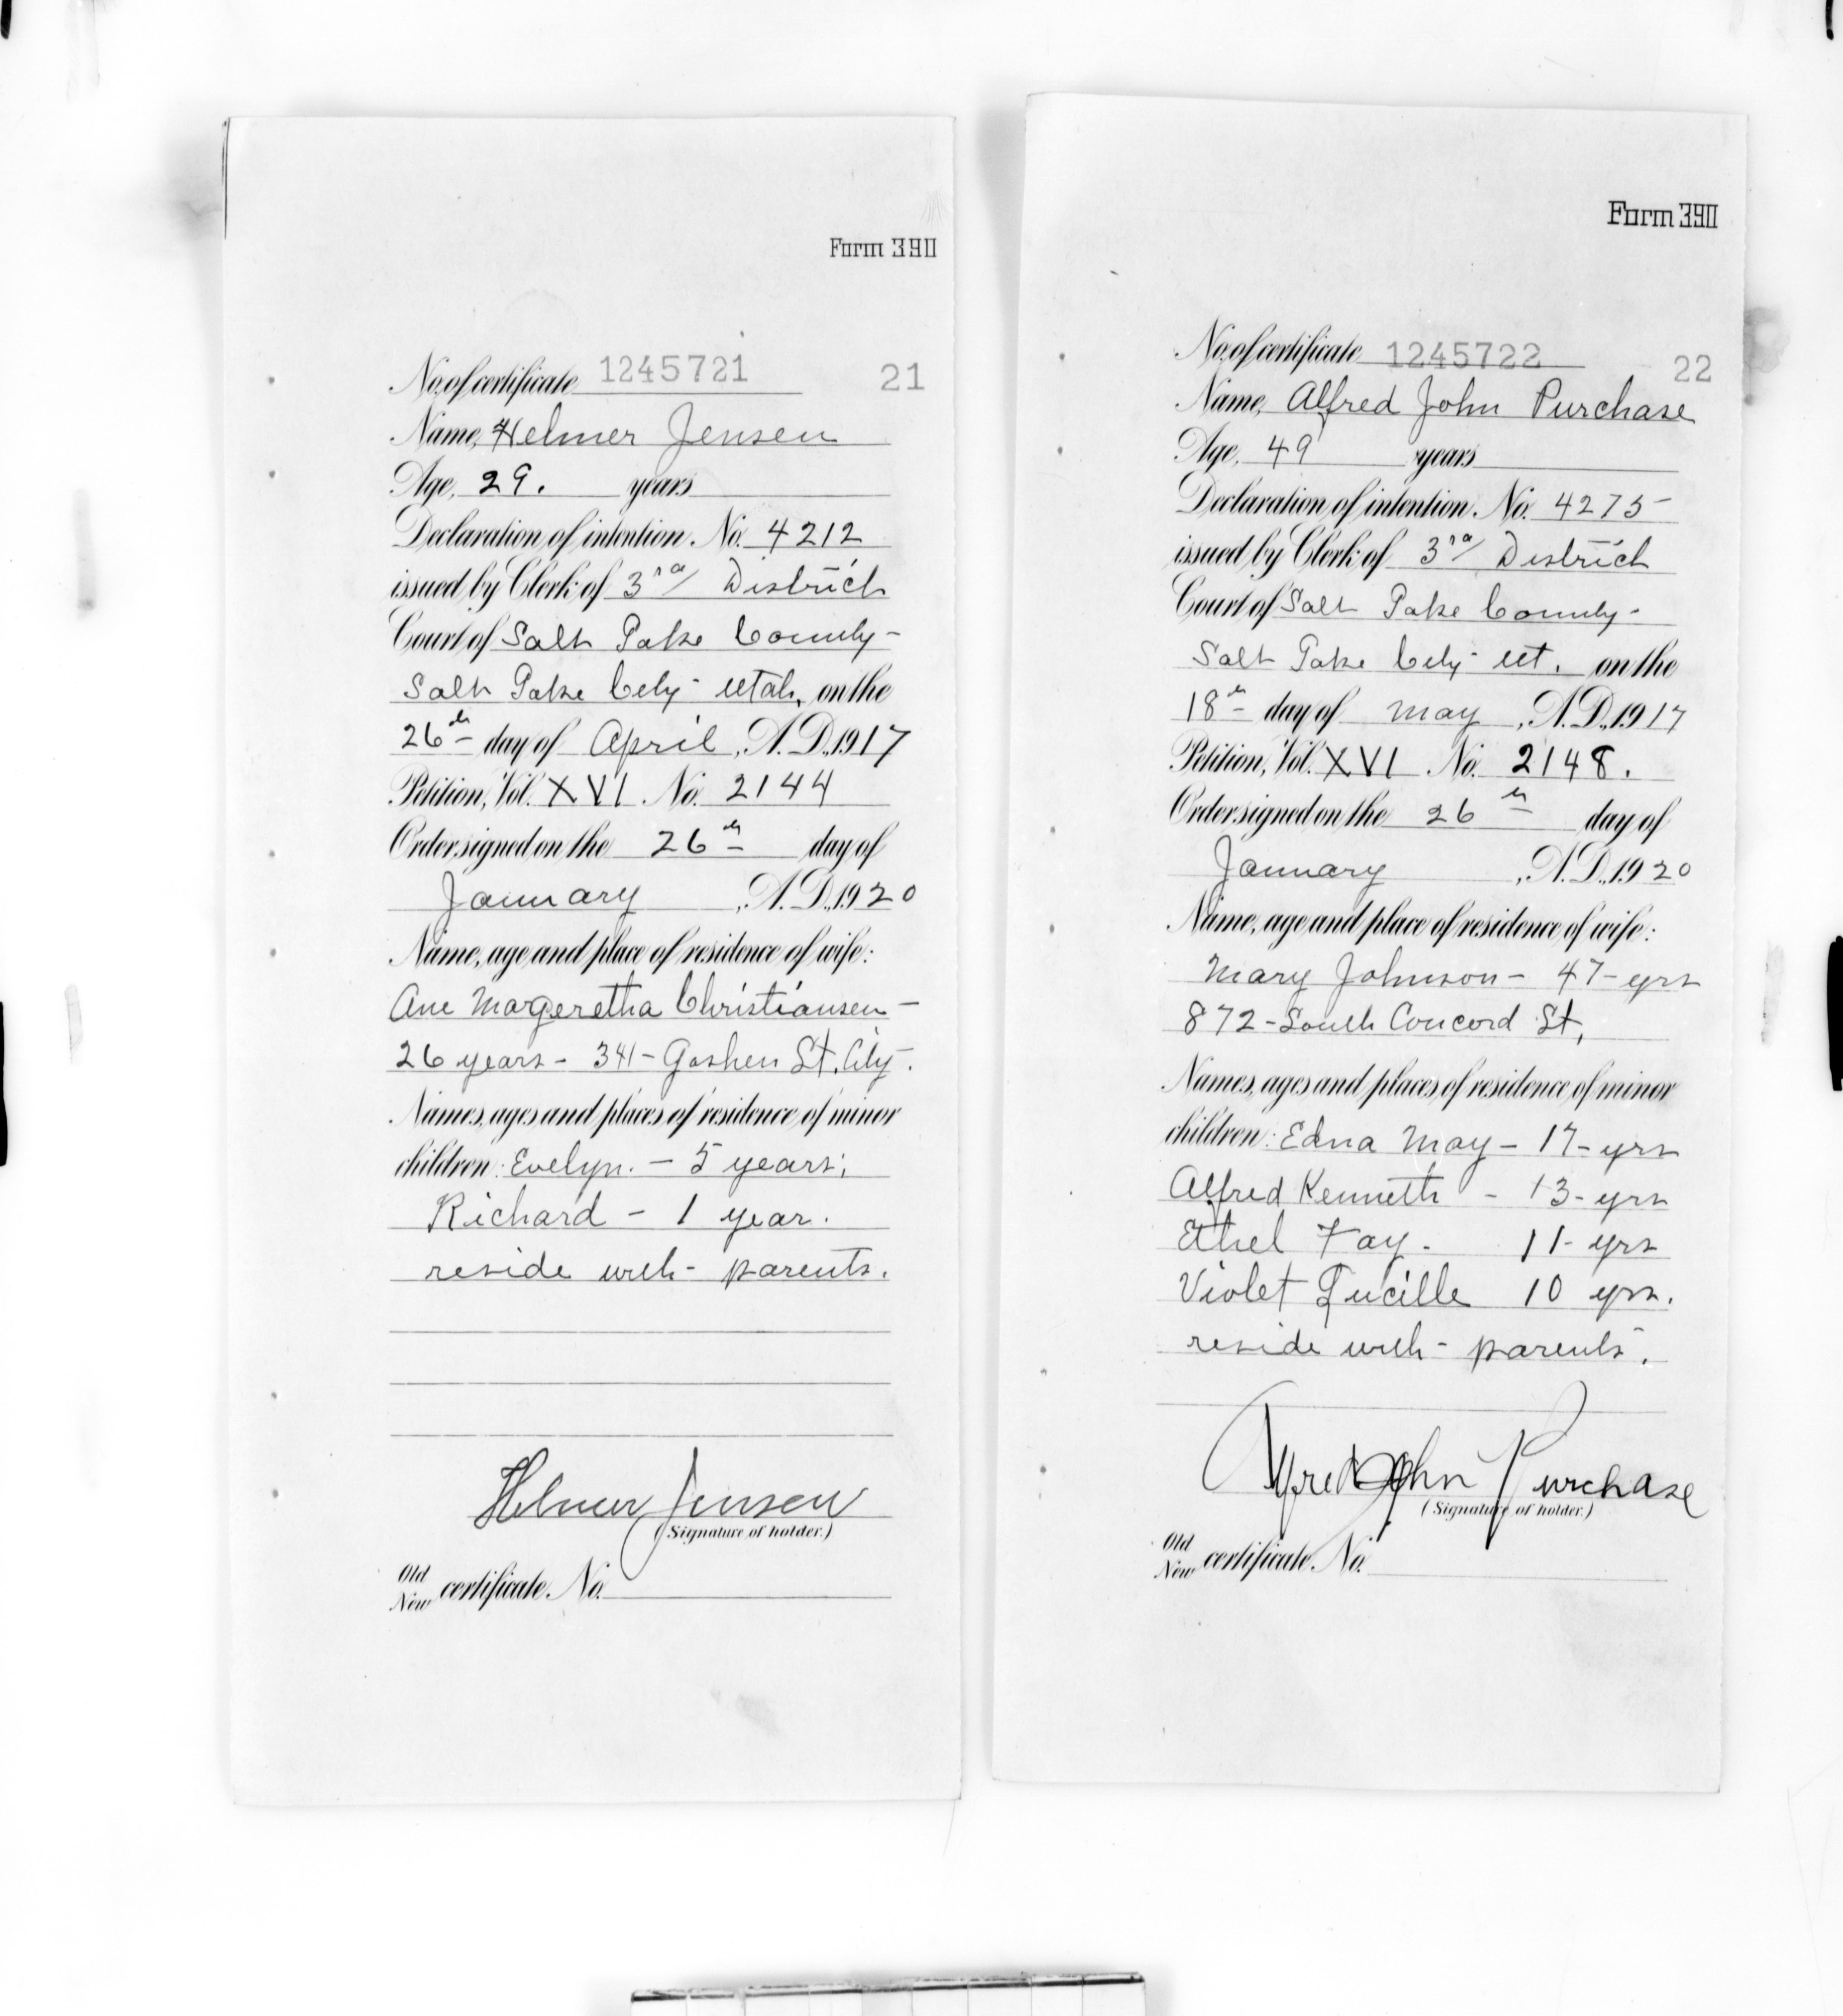 Form 390
No. of certificate 1245721 21
Name, Helmer Jensen
Age, 29. years
Declaration of intention No. 4212
issued by Clerk of 3rd District
Court of Salt Lake County-
Salt Lake City- Utah, on the
26th day of April, A.D. 1917
Petition, Vol. XVI No. 2144
Order signed on the 26th day of
January, A.D. 1920
Name, age and place of residence of wife:
Ane Margeretha Christiansen-
26 years- 341- Goshen St. City.
Names, ages and places of residence of minor
children: Evelyn. - 5 years;
Richard - 1 year.
reside with- parents.
Helmer Jensen
(Signature of holder.)
Old
New certificate No.
Form 390
No. of certificate 1245722 22
Name, Alfred John Purchase
Age, 49 years
Declaration of intention No. 4275-
issued by Clerk of 3rd District
Court of Salt Lake County-
Salt Lake City- Ut. on the
18th day of May, A.D. 1917
Petition, Vol. XVI No. 2148.
Order signed on the 26th day of
January, A.D. 1920
Name, age and place of residence of wife:
Mary Johnson- 47- yrs
872-South Concord St,
Names, ages and places of residence of minor
children: Edna May- 17- yrs
Alfred Kenneth - 13- yrs
Ethel Fay- 11- yrs
Violet Lucille 10 yrs.
reside with- parents.
Alfred John Purchase
(Signature of holder.)
Old
New certificate No.